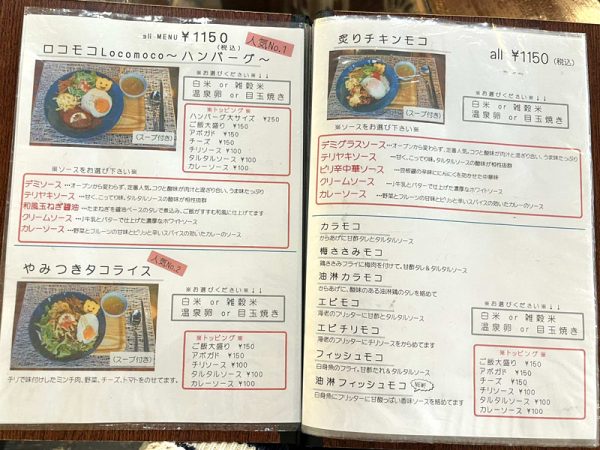 all MENU ￥1150
(税込)
人気No.1
ロコモコLocomoco～ハンバーグ～
※お選びください※↓↓
白米 or 雑穀米
温泉卵 or 目玉焼き
(スープ付き)
※トッピング※
ハンバーグ大サイズ ￥250
ご飯大盛り ￥150
アボガド ￥150
チーズ ￥150
チリソース ￥100
タルタルソース ￥100
カレーソース ￥100
※ソースをお選び下さい※
デミソース …オープンから変わらず、定番人気。コクと酸味が肉汁と混ざり合い、うま味たっぷり
テリヤキソース …甘く、こってり味。タルタルソースの酸味が相性抜群
和風玉ねぎ醤油 …たまねぎを醤油ベースのタレで煮込み、ご飯がすすむ和風に仕上げてます
クリームソース …牛乳とバターで仕上げた濃厚なホワイトソース
カレーソース …野菜とフルーツの甘味とピリッと辛いスパイスの効いたカレーのソース
やみつきタコライス
人気No.2
※お選びください※↓↓
白米 or 雑穀米
温泉卵 or 目玉焼き
(スープ付き)
※トッピング※
ご飯大盛り ￥150
アボガド ￥150
チリソース ￥100
タルタルソース ￥100
カレーソース ￥100
チリで味付けしたミンチ肉、野菜、チーズ、トマトをのせてます。
炙りチキンモコ
all ￥1150(税込)
※お選びください※↓↓
白米 or 雑穀米
温泉卵 or 目玉焼き
(スープ付き)
※ソースをお選び下さい※
デミグラスソース …オープンから変わらず、定番人気。コクと酸味が肉汁と混ざり合い、うま味たっぷり
テリヤキソース …甘く、こってり味。タルタルソースの酸味が相性抜群
ピリ辛中華ソース …豆板醤の辛味ににんにくを効かせた中華味
クリームソース …牛乳とバターで仕上げた濃厚なホワイトソース
カレーソース …野菜とフルーツの甘味とピリッと辛いスパイスの効いたカレーのソース
カラモコ
からあげに甘酢タレとタルタルソース
梅ささみモコ
鶏ささみフライに梅肉を付けて、甘酢タレ&タルタルソース
油淋カラモコ
からあげに、酸味のある油淋鶏のタレを絡めて
エビモコ
海老のフリッターに甘酢とタルタルソース
エビチリモコ
海老のフリッターにチリソースをからめてます
フィッシュモコ
白身魚のフライ。甘酢たれ&タルタルソース
油淋フィッシュモコ
白身魚にフリッターに甘酸っぱい香味ソースを絡めてます
※お選びください※↓↓
白米 or 雑穀米
温泉卵 or 目玉焼き
※トッピング※
ご飯大盛り ￥150
アボガド ￥150
チーズ ￥150
チリソース ￥100
タルタルソース ￥100
カレーソース ￥100